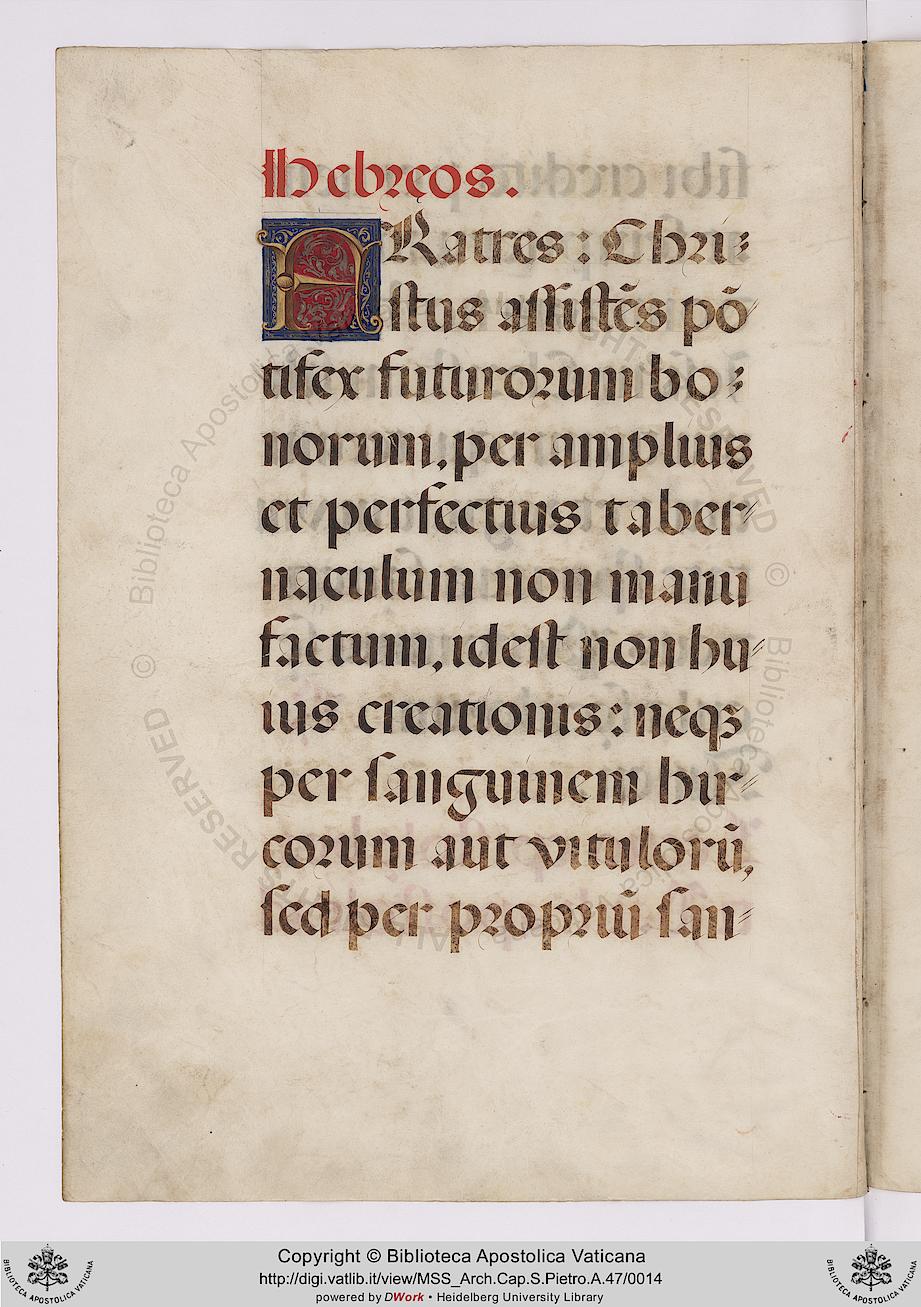 Hebreos.
FRatres: Chri⸗
stus assistẽs põ⸗
tifex futurorum bo⸗
norum, per amplius
et perfectius taber⸗
naculum non manu
factum, idest non hu⸗
ius creationis: neqꝫ
per sanguinem hir⸗
corum aut vitulorũ,
sed per propriũ san⸗
Copyright © Biblioteca Apostolica Vaticana
http://digi.vatlib.it/view/MSS_Arch.Cap.S.Pietro.A.47/0014
powered by DWork • Heidelberg University Library
BIBLIOTECA APOSTOLICA VATICANA
BIBLIOTECA APOSTOLICA VATICANA